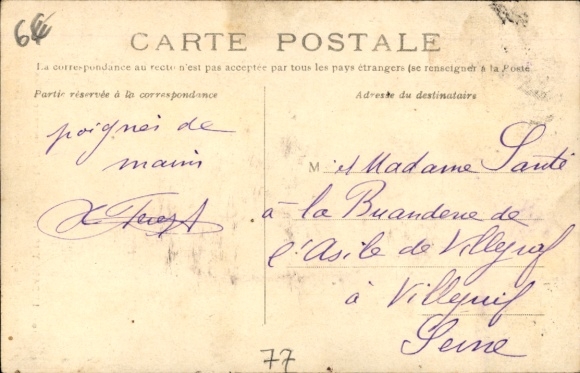 6€
CARTE POSTALE
La correspondance au recto n'est pas acceptée par tous les pays étrangers (se renseigner à la Poste
Partie réservée à la correspondance
Adresse du destinataire
poignés de
mains
M et Madame Santé
à la Buanderie de
l'Asile de Villejuif
à Villejuif
Seine
77